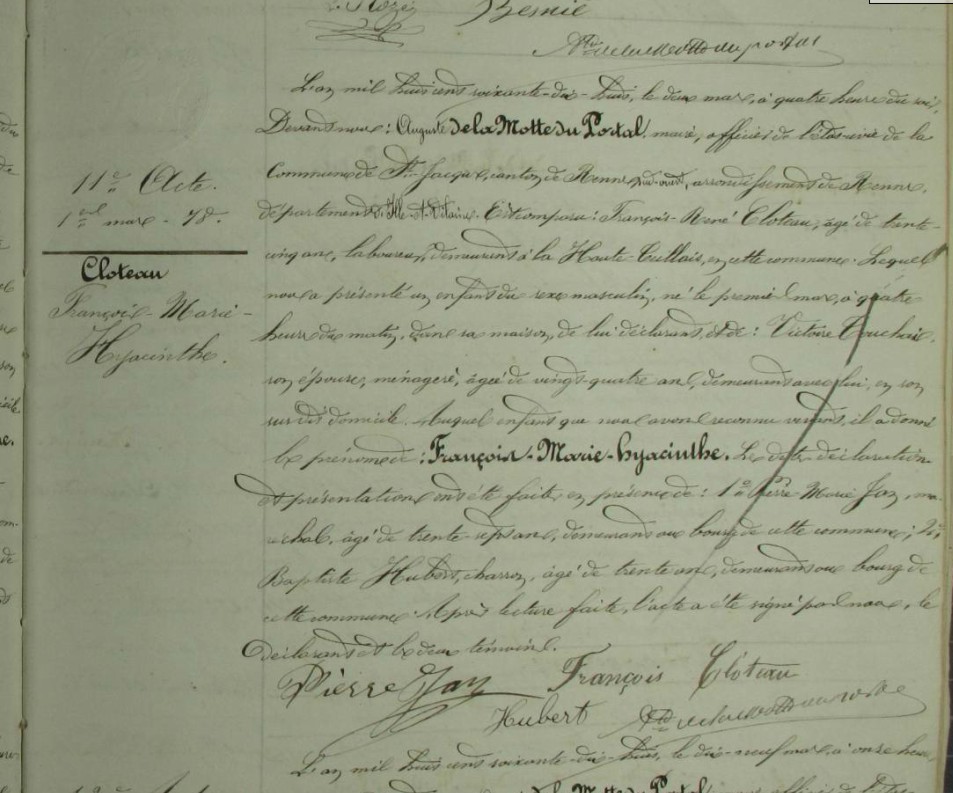 Besnié
Ate de la Motte du portal
L'an mil huit cent soixante-dix-huit, le deux mars, à quatre heures du soir,
Devant nous: Auguste de la Motte du Portal, maire, officier de l'état-civil de la
11e Acte.
Commune de St Jacques, canton de Rennes sud-ouest, arrondissement de Rennes,
1er mars - 78.
département d'Ille-et-Vilaine. Est comparu: François-René Cloteau, âgé de trente-
cinq ans, laboureur, demeurant à la Haute-, en cette commune. Lequel
Cloteau
François-Marie-
Hyacinthe.
nous a présenté un enfant du sexe masculin, né le premier mars, à quatre
heures du matin, dans sa maison, de lui déclarant, et de: Victoire
son épouse, ménagère, âgée de vingt-quatre ans, demeurant avec lui, en son
susdit domicile. Auquel enfant que nous avons reconnu vivant, il a donné
les prénoms de: François-Marie-hyacinthe. Les dites déclaration
et présentation ont été faites en présence de: 1o Pierre Marie Jan, ma-
réchal, âgé de trente-sept ans, demeurant au bourg de cette commune; 2o
Baptiste Hubert, charron, âgé de trente ans, demeurant au bourg de
cette commune. Après lecture faite, l'acte a été signé par nous, le
Déclarant et les deux témoins.
Pierre Jan François Cloteau
Hubert Ate de la Motte du portal
L'an mil huit cent soixante-dix-huit, le dix-neuf mars, à onze heures
de la Motte du Portal